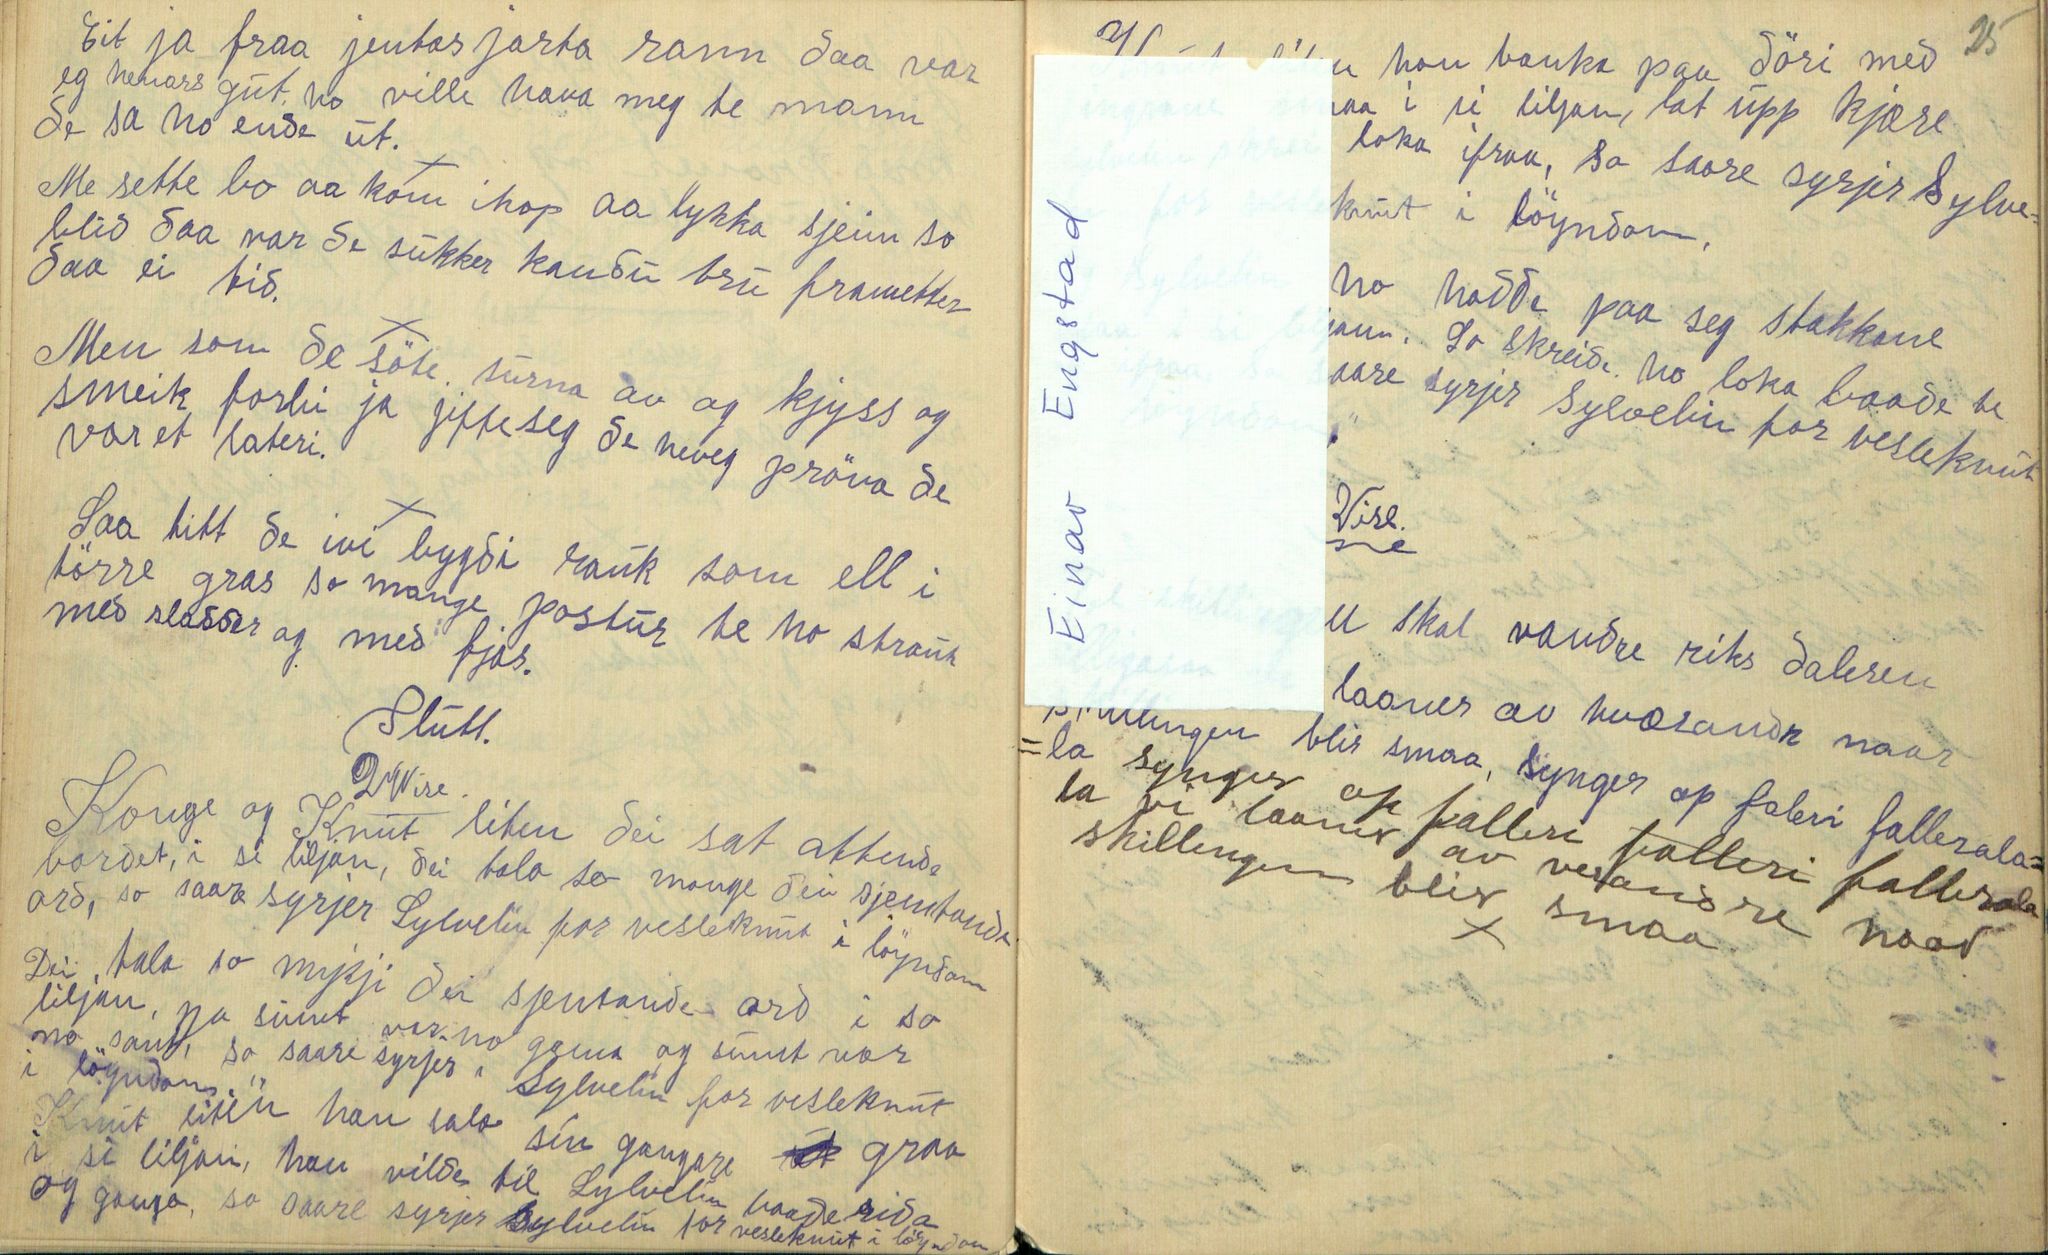 Eit ja fraa jentas jarta rann daa var
eg hennars gut, ho ville hava meg te mann
de sa ho ende ut.
x
Me sette bo aa kom ihop aa lykka sjein so
blid daa var de sukker kandu tru frametter
daa ei tid.
x
Men som de söte surna av og kjyss og
smeik forbi ja jifte seg de neveg pröva de
var et lateri.
x
Saa titt de ivi bygdi rauk som ell i
törre gras so mange postur te ho strauk
med sladder og med fjas.
Slutt.
2 Vise.
Konge og Knut liten dei sat attende
bordet, i si liljan, dei tala so mange dei sjemtande
ord, so saare syrjer Sylvelin for vesleknut i löyndom
Dei tala so mykji dei sjentande ord i so
liljan, no sumt var no gama og sumt var
no sant, so saare syrjer, Sylvelin for vesleknut
i löyndom."
Knut liten han sala sin gangare graa
i si liljan, han vilde til Sylvelin baade rida
og ganga, so saare syrjer Sylvelin for vesleknut i löyndom
25
han banka paa döri med
i si liljan, lat upp kjære
loka ifraa, so saare syrjer Sylve=
knut i löyndom,
ho hadde paa seg stakkane
So skreide ho loka baade te
saare syrjer Sylvelin for vesleknut
Vise.
skal vandre riks daleren
laaner av hverandre naar
skillingen blir smaa, synger op faleri fallerala=
=la synger op falleri falleri fallerala
la vi laaner av verandre naar
skillingen blir smaa
x
Einar Engstad